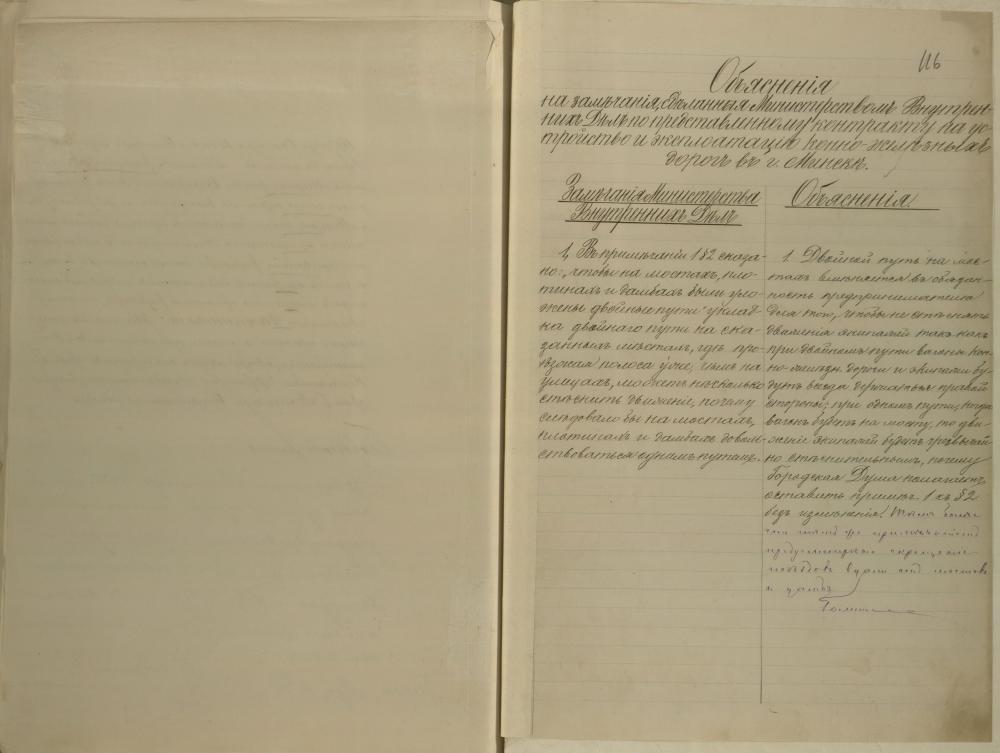 116
Объясненія
на замѣчанія, сдѣланныя Министерствомъ Внутрен-
нихъ Дѣлъ по представленному контракту на ус-
тройство и эксплоатацію конно-желѣзныхъ
дорогъ въ г. Минскѣ.
Замѣчанія Министерства
Внутреннихъ Дѣлъ
1, Въ примѣчаніи 1 § 2 сказа-
но:, чтобы на мостахъ, пло-
тинахъ и дамбахъ были уло-
жены двойные пути укладка
ка двойнаго пути на ска-
занныхъ мѣстахъ, гдѣ про-
ѣзжая полоса уже, чѣмъ на
улицахъ, можетъ нѣсколько
стѣснить движеніе, почему
слѣдовало бы на мостахъ,
плотинахъ и дамбахъ доволь-
ствоваться однимъ путемъ.
Объясненія
1. Двойной путь на мос-
тахъ вмѣняется въ обязан-
ность предпринимателю
для того, чтобы не стѣснять
движенія экипажей такъ какъ
при двойномъ пути вагоны кон-
но-желѣзн. дороги и экипажи бу-
дутъ всегда держаться правой
стороны; при одномъ пути, когда
вагонъ будетъ на мосту, то дви-
женіе экипажей будетъ чрезвычай-
но стѣснительнымъ, почему
Городская Дума полагаетъ
оставить примѣч. 1 къ § 2
безъ измѣненія. Тѣмъ болѣе
что
и дамбъ